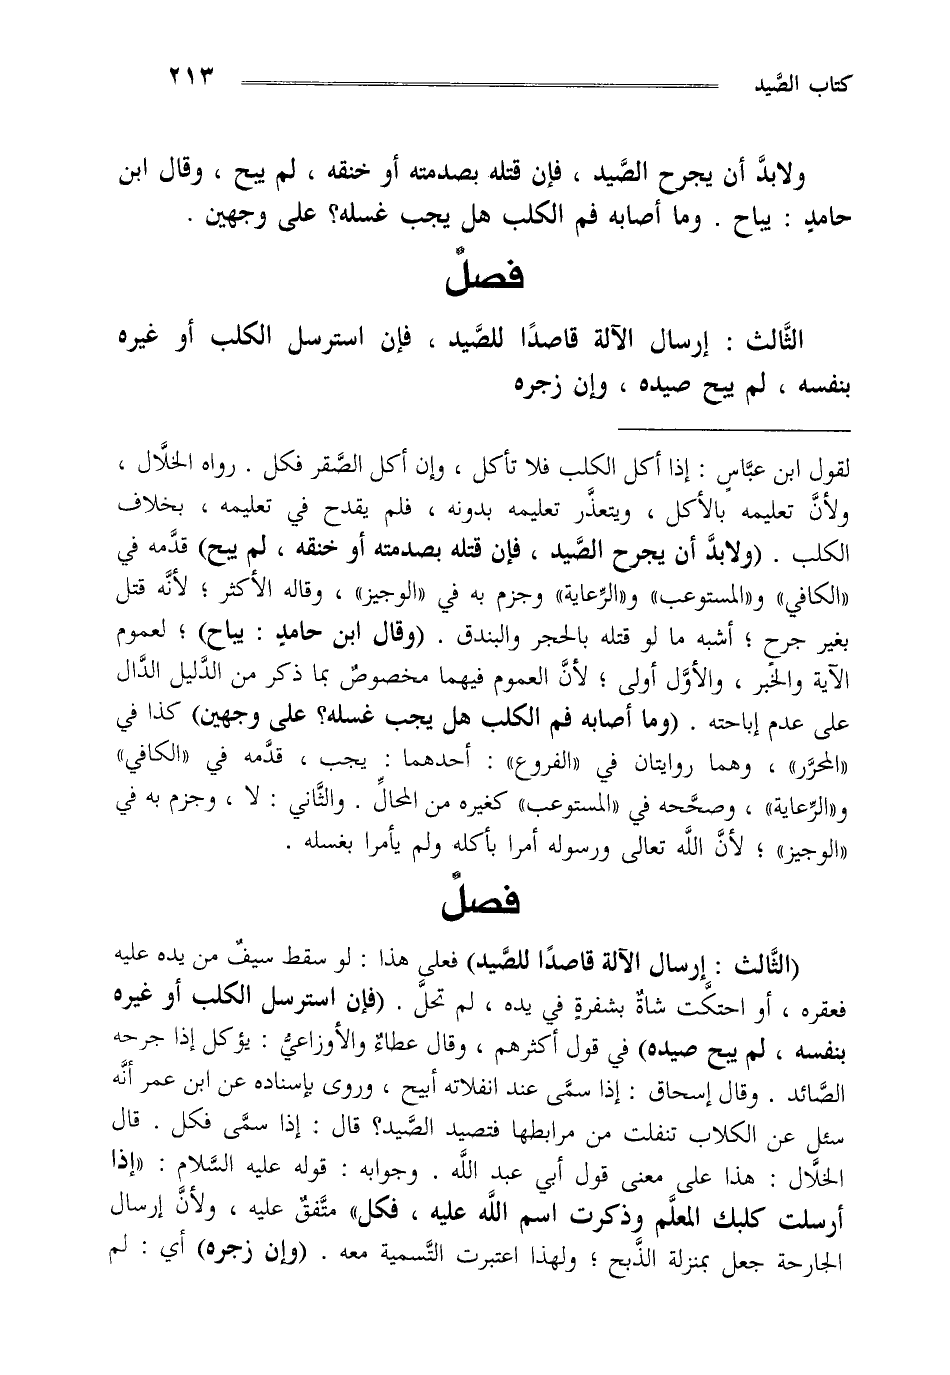 كتاب الصَّيد ٢١٣
ولابدَّ أن يجرح الصَّيد ، فإن قتله بصدمته أو خنقه ، لم يبح ، وقال ابن
حامدٍ : يباح . وما أصابه فم الكلب هل يجب غسله؟ على وجهين .
فصلٌ
الثَّالث : إرسال الآلة قاصدًا للصَّيد ، فإن استرسل الكلب أو غيره
بنفسه ، لم يبح صيده ، وإن زجره
لقول ابن عبَّاسٍ : إذا أكل الكلب فلا تأكل ، وإن أكل الصَّقر فكل . رواه الخلَّال ،
ولأنَّ تعليمه بالأكل ، ويتعذَّر تعليمه بدونه ، فلم يقدح في تعليمه ، بخلاف
الكلب . (ولابدَّ أن يجرح الصَّيد ، فإن قتله بصدمته أو خنقه ، لم يبح) قدَّمه في
«الكافي» و«المستوعب» و«الرِّعاية» وجزم به في «الوجيز» ، وقاله الأكثر ؛ لأنَّه قتل
بغير جرحٍ ؛ أشبه ما لو قتله بالحجر والبندق . (وقال ابن حامدٍ : يباح) ؛ لعموم
الآية والخبر ، والأوَّل أولى ؛ لأنَّ العموم فيهما مخصوصٌ بما ذكر من الدَّليل الدَّال
على عدم إباحته . (وما أصابه فم الكلب هل يجب غسله؟ على وجهين) كذا في
«المحرَّر» ، وهما روايتان في «الفروع» : أحدهما : يجب ، قدَّمه في «الكافي»
و«الرِّعاية» ، وصحَّحه في «المستوعب» كغيره من المحالِّ . والثَّاني : لا ، وجزم به في
«الوجيز» ؛ لأنَّ اللَّه تعالى ورسوله أمرا بأكله ولم يأمرا بغسله .
فصلٌ
(الثَّالث : إرسال الآلة قاصدًا للصَّيد) فعلى هذا : لو سقط سيفٌ من يده عليه
فعقره ، أو احتكَّت شاةٌ بشفرةٍ في يده ، لم تحلَّ . (فإن استرسل الكلب أو غيره
بنفسه ، لم يبح صيده) في قول أكثرهم ، وقال عطاءٌ والأوزاعيُّ : يؤكل إذا جرحه
الصَّائد . وقال إسحاق : إذا سمَّى عند انفلاته أبيح ، وروى بإسناده عن ابن عمر أنَّه
سئل عن الكلاب تنفلت من مرابطها فتصيد الصَّيد؟ قال : إذا سمَّى فكل . قال
الخلَّال : هذا على معنى قول أبي عبد اللَّه . وجوابه : قوله عليه السَّلام : «إذا
أرسلت كلبك المعلَّم وذكرت اسم اللَّه عليه ، فكل» متَّفقٌ عليه ، ولأنَّ إرسال
الجارحة جعل بمنزلة الذَّبح ؛ ولهذا اعتبرت التَّسمية معه . (وإن زجره) أي : لم